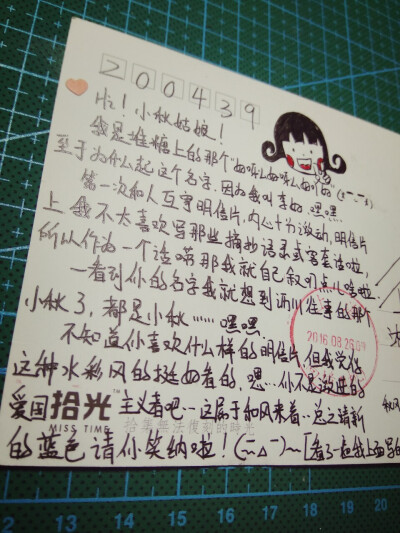 200439
Hi！小秋姑娘！
我是堆糖上的那个"
至于为什么起这个名字.因为我叫李如.嘿嘿
第一次和人互寄明信片,内心十分激动,明信片
上 我不太喜欢写那些摘抄语录或客套话啦
所以作为一个话唠那我就自己叙叨点儿啥啦
一看到你的名字我就想到酒川往事的那个
小秋了,都是小秋……嘿嘿.
不知道你喜欢什么样的明信片 但我觉得
这种水彩风的挺好看的,嗯…你不是激进的
爱国 拾光™ 主义者吧…这属于和风来着…总之清新
MISS TIME
拾筆無法復制的時光
的蓝色请你笑纳啦！
2016 08 26 09
12 13 14 15 16 17 18 19 20